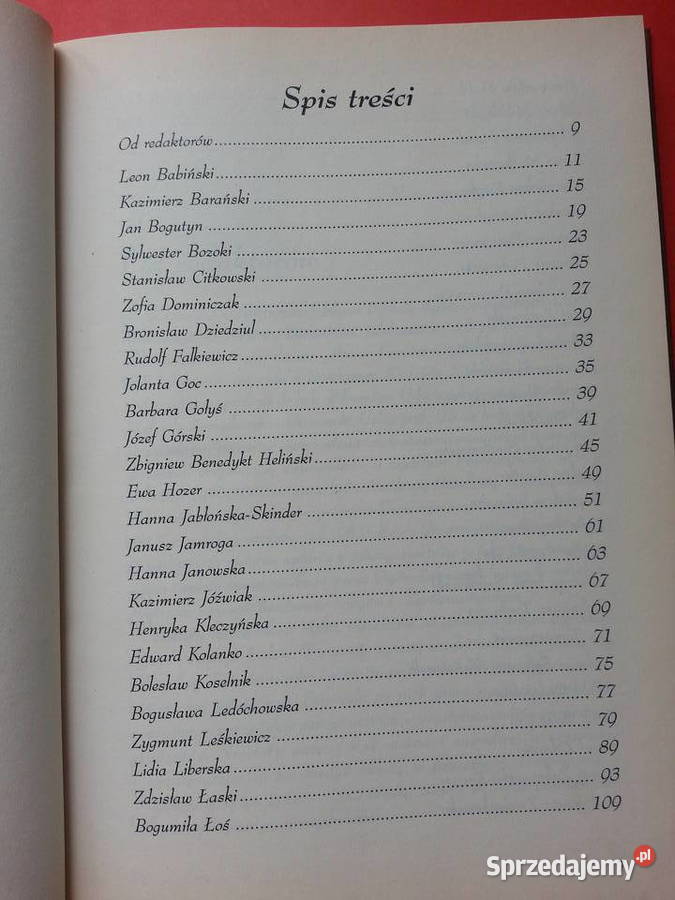 Spis treści
Od redaktorów.......................................................... 9
Leon Babiński.......................................................... 11
Kazimierz Barański .......................................................... 15
Jan Bogutyn .......................................................... 19
Sylwester Bozoki .......................................................... 23
Stanisław Citkowski .......................................................... 25
Zofia Dominiczak .......................................................... 27
Bronisław Dziedziul .......................................................... 29
Rudolf Falkiewicz .......................................................... 33
Jolanta Goc .......................................................... 35
Barbara Gołyś .......................................................... 39
Józef Górski .......................................................... 41
Zbigniew Benedykt Heliński.......................................................... 45
Ewa Hozer .......................................................... 49
Hanna Jabłońska-Skinder .......................................................... 51
Janusz Jamroga .......................................................... 61
Hanna Janowska.......................................................... 63
Kazimierz Jóźwiak .......................................................... 67
Henryka Kleczyńska .......................................................... 69
Edward Kolanko .......................................................... 71
Bolesław Koselnik .......................................................... 75
Bogusława Ledóchowska .......................................................... 77
Zygmunt Leśkiewicz .......................................................... 79
Lidia Liberska .......................................................... 89
Zdzisław Łaski .......................................................... 93
Bogumiła Łoś .......................................................... 109
Sprzedajemy.pl